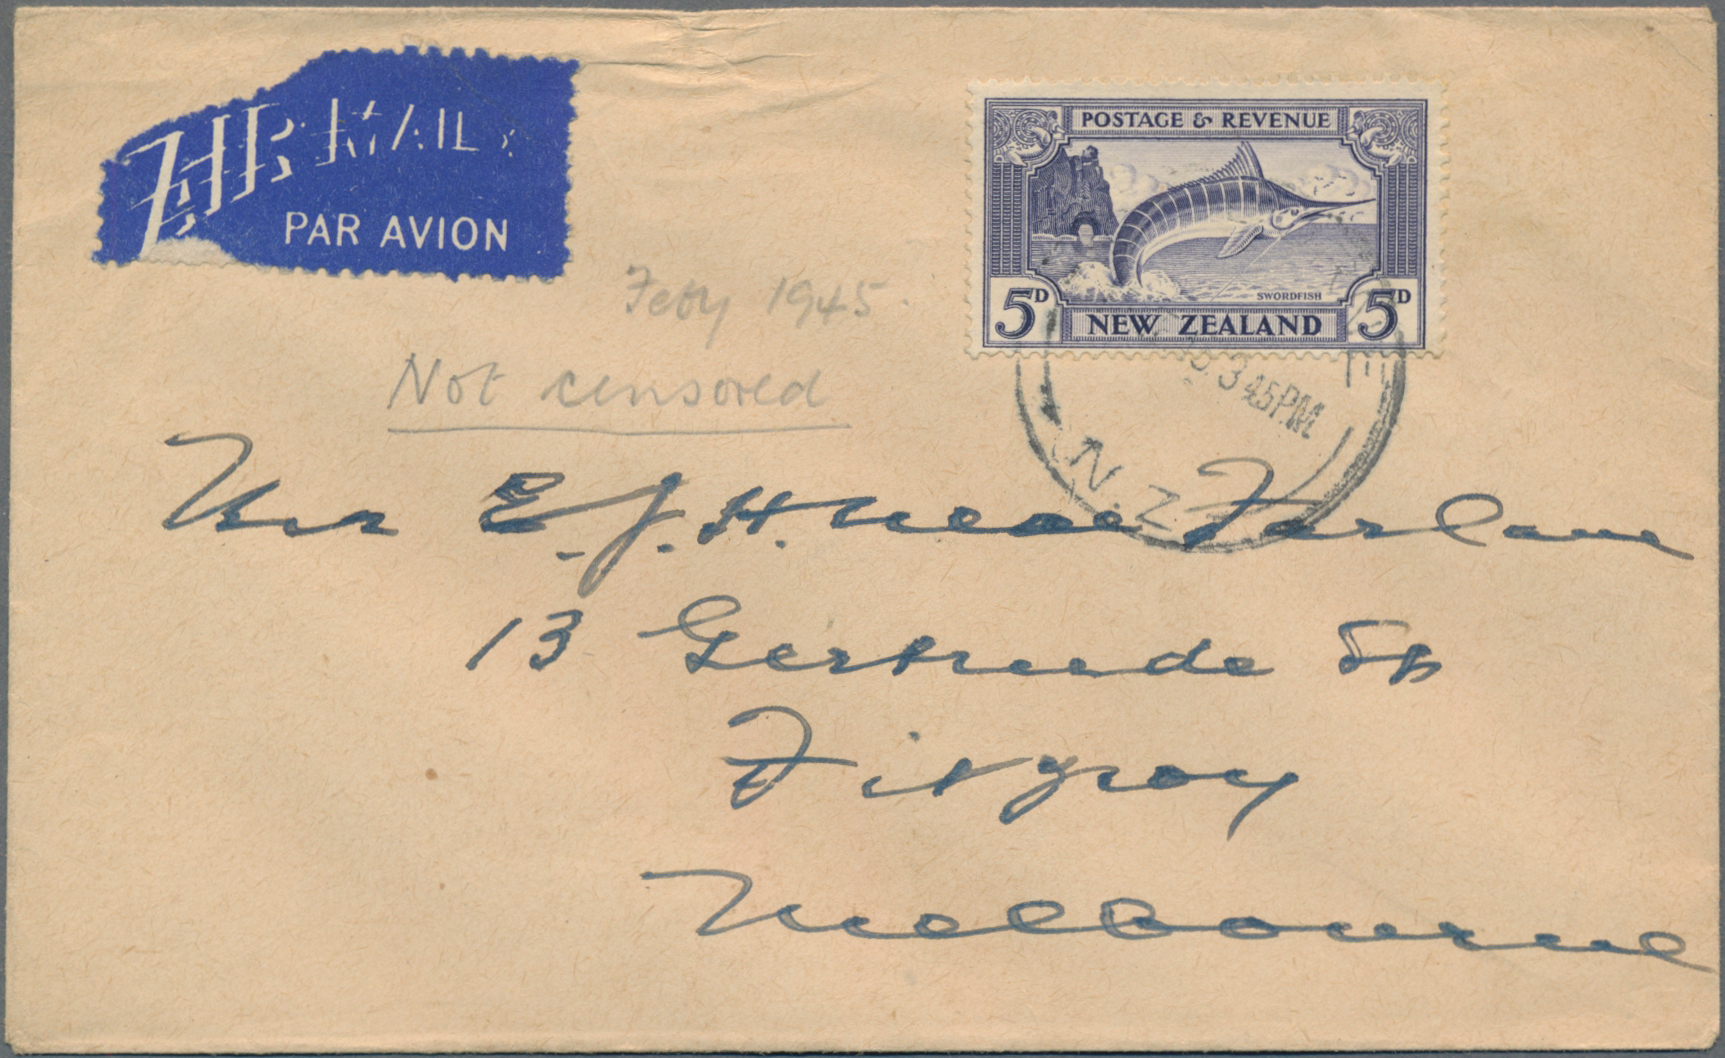 AIR MAIL
PAR AVION
POSTAGE & REVENUE
SWORDFISH
5D 5D
NEW ZEALAND
Feby 1945.
Not censored
3 45PM
N.Z.
E. J. H. MacFarlane
13 Gertrude St
Fitzroy
Melbourne